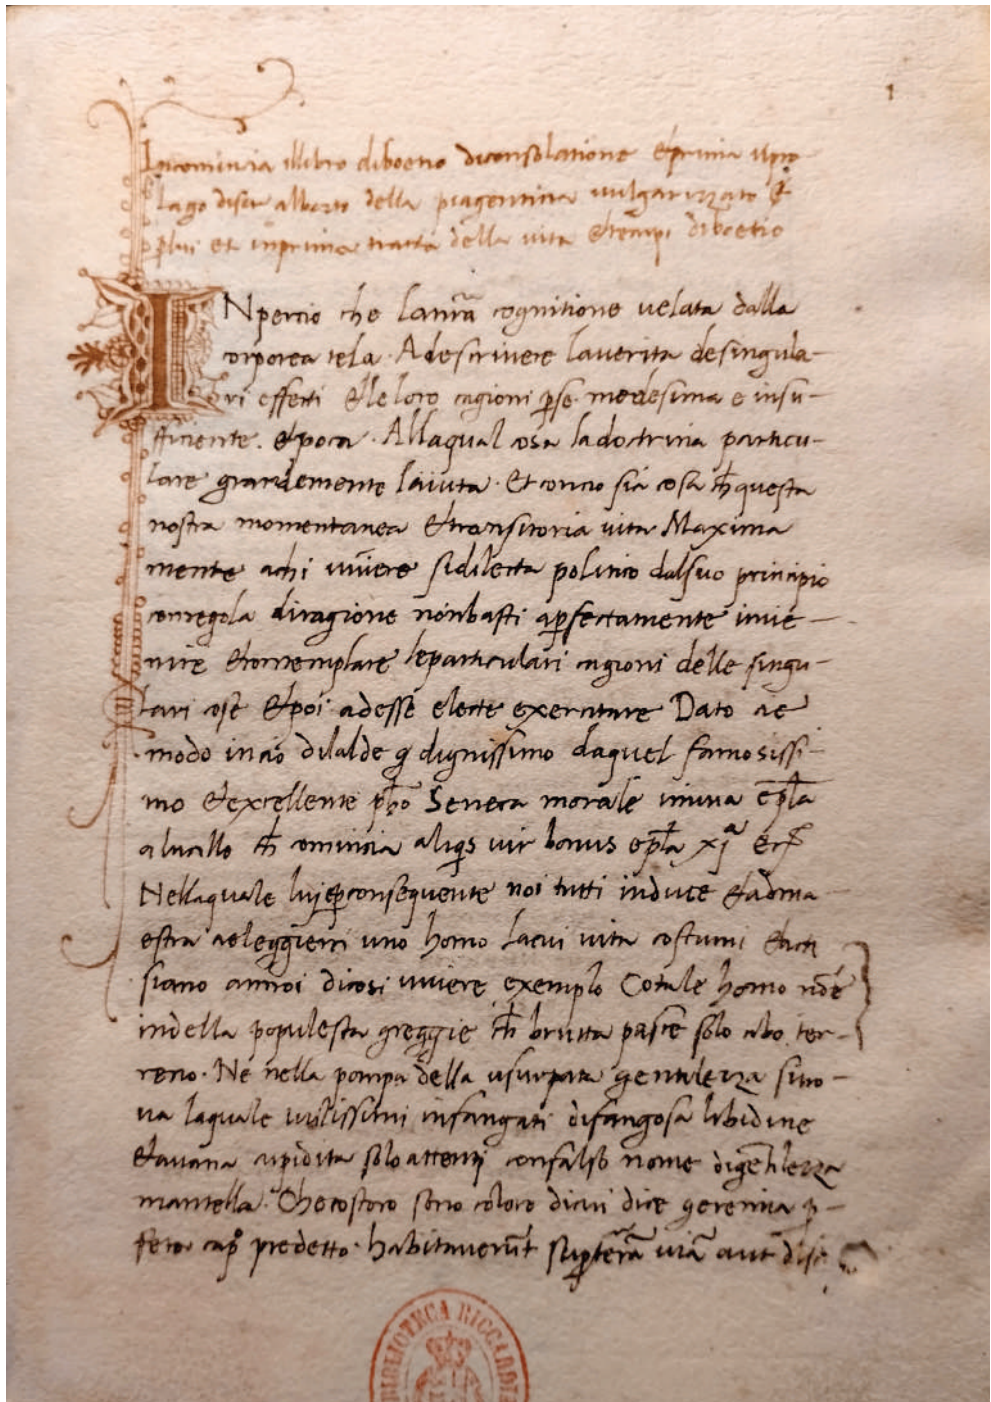 1
Incomincia illibro diboetio diconsolatione etprima ilpro-
lago diser alberto della piagentina vulgarizzato &
plui et inprima tracta della vita etempi diboetio
INpercio che lanr̄a cognitione uelata dalla
corporea tela. Adescriuere lauerita desingula-
ri effecti etleloro cagioni ꝑse medesima e insu-
fficiente. etpoca. Allaqual cosa ladoctrina particu-
lare grandemente laiuta. Et concio sia cosa ch̄questa
nostra momentanea ettransitoria uita Maxima
mente achi uiuere sidilecta politico dalsuo principio
conregola diragione nonbasti aꝑfectamente inue-
nire etcontemplare leparticulari cagioni delle singu-
lari cose etpoi adesse electe exercitare Dato ce
modo incio dilalde dignissimo daquel famosissi-
mo etexcellente ph̄o Seneca morale inuna ep̄la
alucillo ch̄ comincia aliq̄s uir bonus ep̄la xjª
Nellaquale luj etꝑconsequente noi tutti induce etadma-
estra aeleggierci uno homo lacui uita costumi etacti
siano annoi dicosi uiuere exemplo Cotale homo nō e
indella populesca greggie ch̄ brutta pasce solo cibo ter-
reno. Ne nella pompa della usurpata gentileza sitro-
ua laquale uilissimi infangati difangosa libidine
etauara cupidita solo attenti confalso nome digentileza
mantella. Che costoro sono coloro dicui dice geremia ꝓ-
feta cap̊ predetto. habitauerūt sup̄ terām uiā aut
BIBLIOTECA RICCARDI